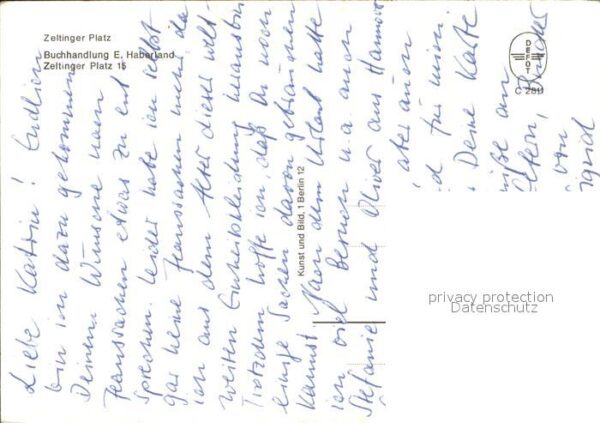 Zeltinger Platz
Buchhandlung E. Haberland
Zeltinger Platz 15
DEFOT
C 2811
Kunst und Bild, 1 Berlin 12
privacy protection
Datenschutz
Liebe Katrin! Endlich
bin ich dazu gekommen
Deinem Wunsche nach
Jeanssachen etwas zu ent
sprechen. Leider habe ich selbst
gar keine Jeanssachen mehr, da
ich aus dem Alter dieser welt-
weiten Einheitskleidung heraus bin
Trotzdem hoffe ich, daß Du noch
einige Sachen davon gebrauchen
kannst. Nach dem Urlaub hatte
ich viel Besuch u.a. auch
Stefanie und Oliver aus Hannover
aber auch
d für mich
Deine Karte
üße an
ltern, Bruder
von
ngrid